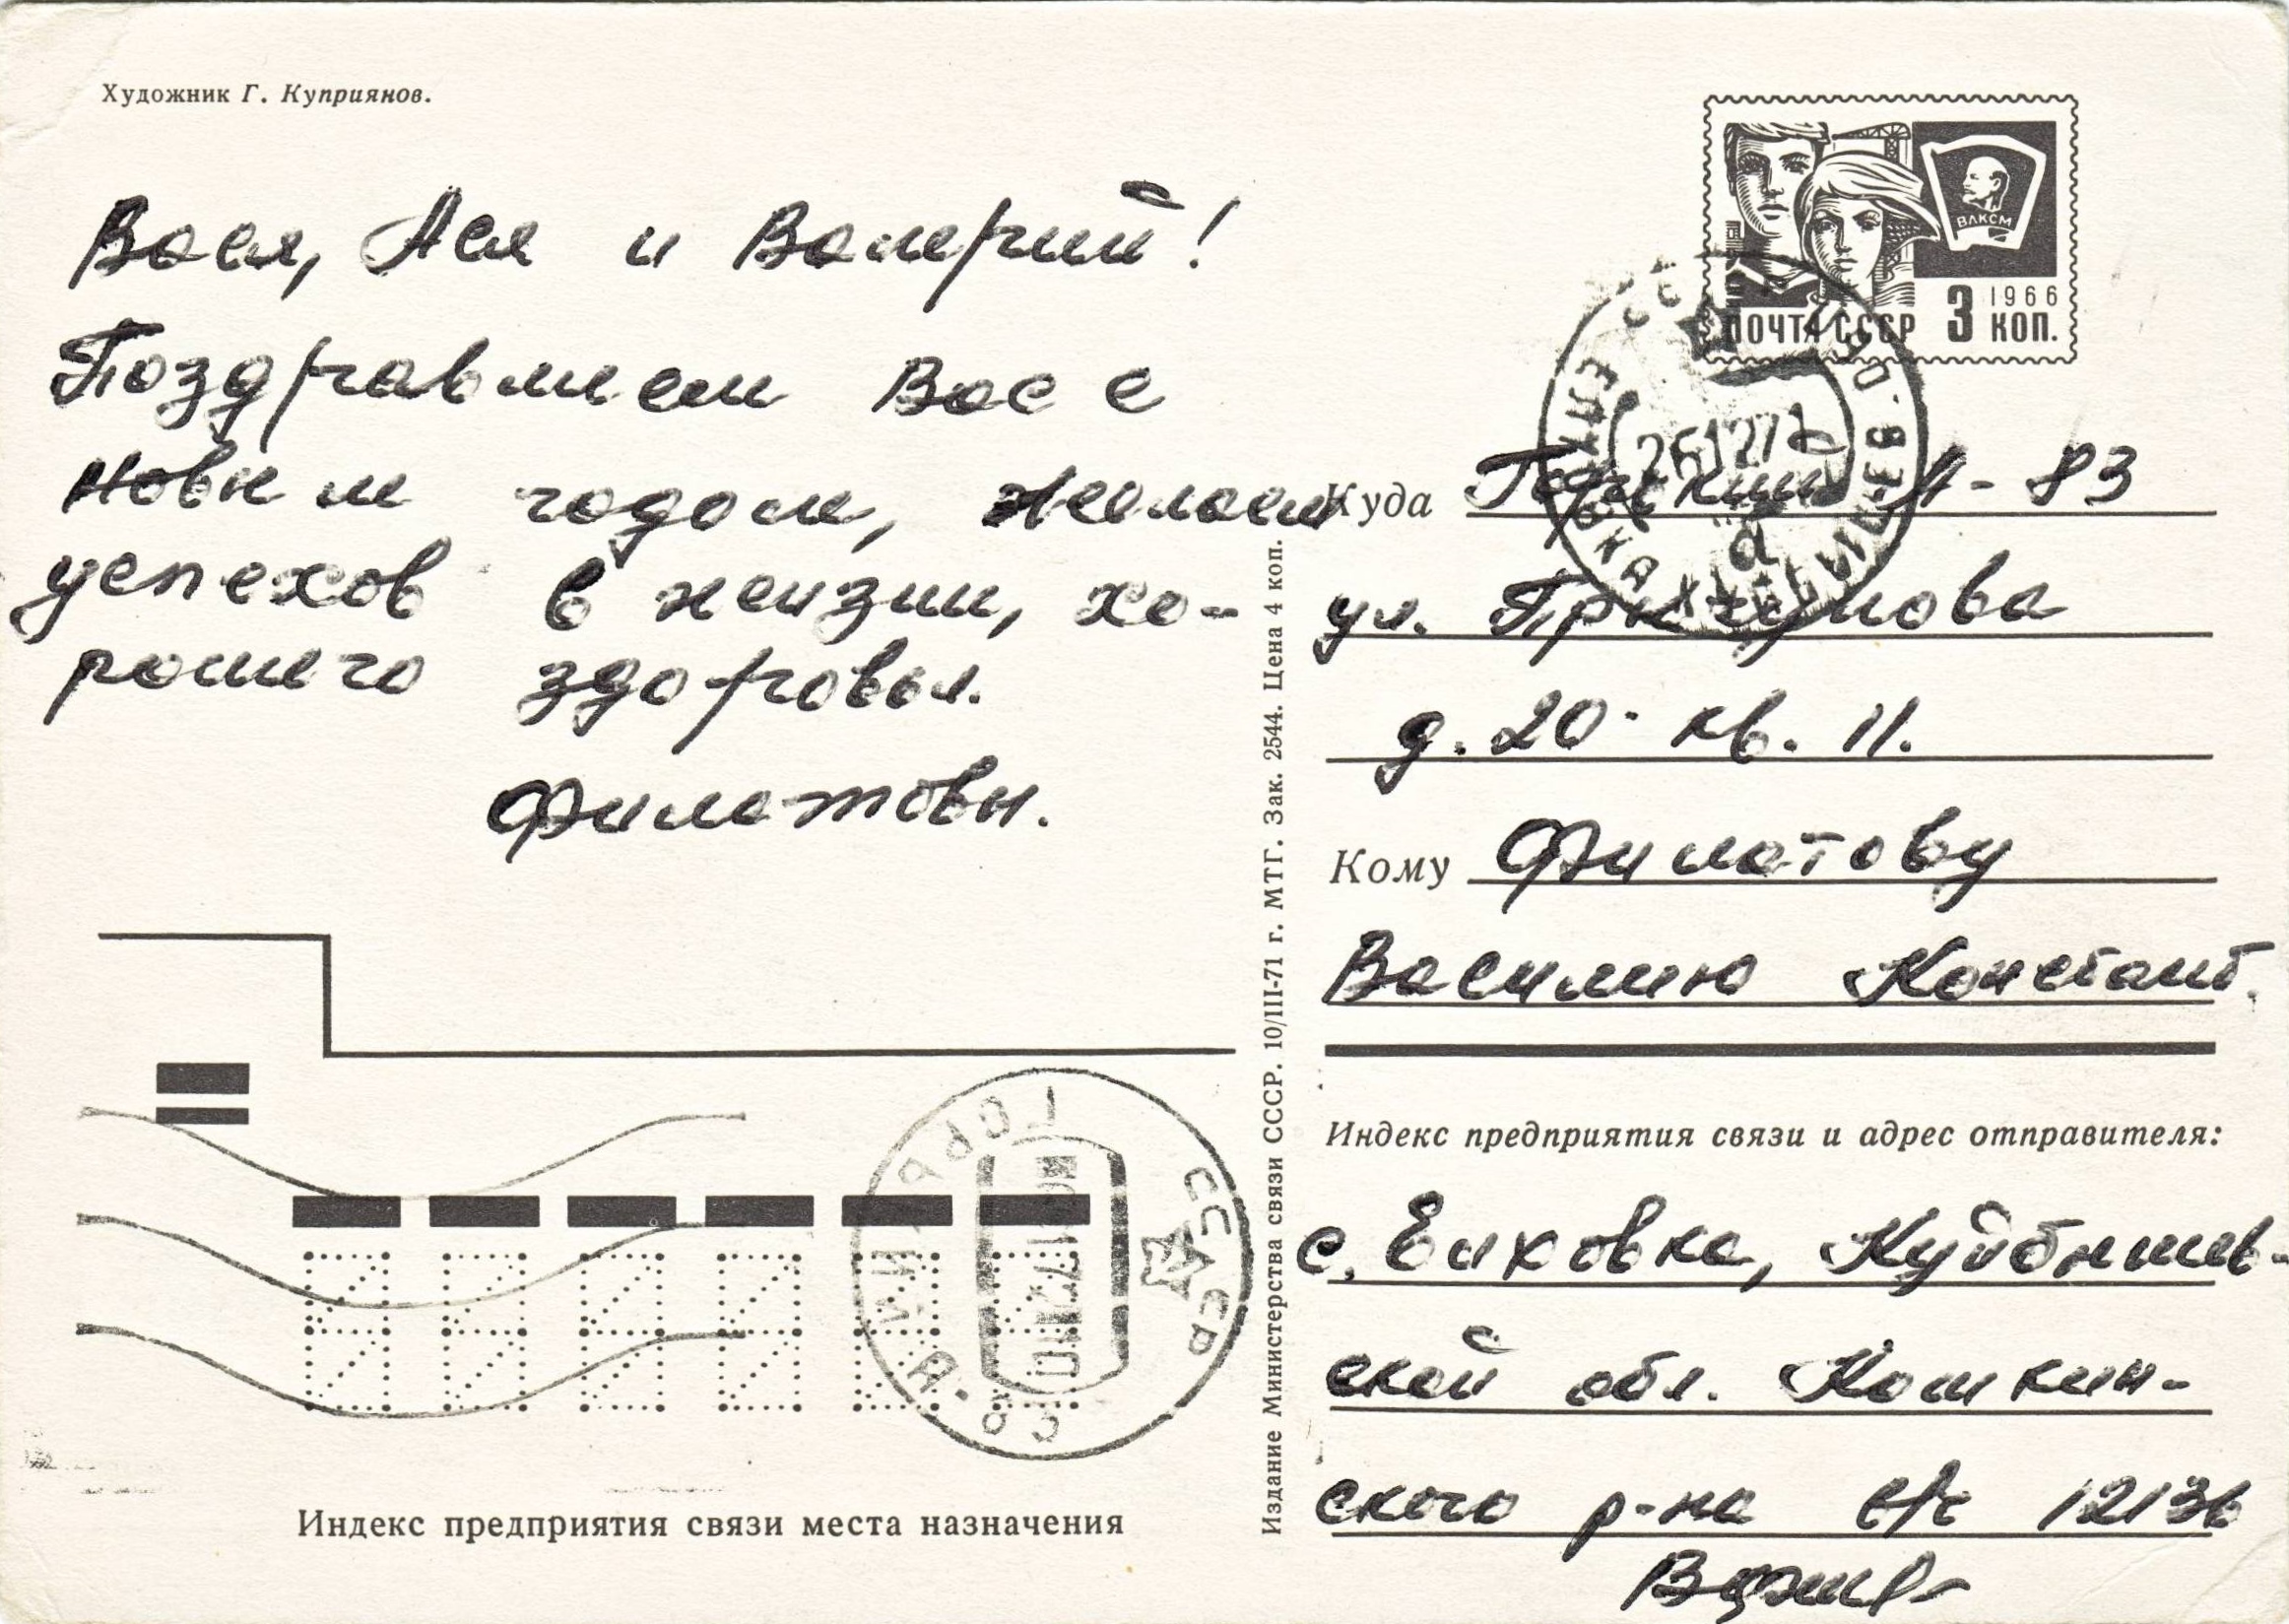 Художник Г. Куприянов.
Вася, Ася и Валерий!
Поздравляем Вас с
новым годом, желаем
успехов в жизни, хо-
рошего здоровья.
Филатовы.
ВЛКСМ
1966
ПОЧТА СССР 3 КОП.
Куда Горький М-83
ул.
д. 20. кв. 11.
Кому Филатову
Василию Констант.
Индекс предприятия связи и адрес отправителя:
с. Елховка, Куйбышев-
ской обл. Кошкин-
ского р-на
Издание Министерства связи СССР. 10/III-71 г. МТГ. Зак. 2544. Цена 4 коп.
СССР
Индекс предприятия связи места назначения